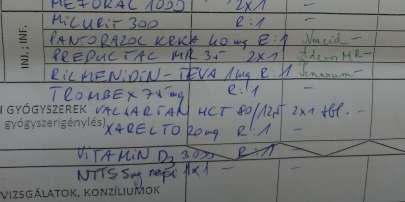 MEFORAL 1000 2x1 –
MILURIT 300 R:1 –
INJ.; INF.
PANTORAZOL KRKA 40 mg R:1 Noacid –
PREDUCTAL MR 35 2x1 MR –
RILMENIDIN-TEVA 1 mg R:1 –
TROMBEX 75 mg R:1 –
GYÓGYSZEREK VALSARTAN HCT 80/12,5 2x1 tbl. –
gyógyszerigénylés) XARELTO 20 mg R:1 –
VITAMIN D3 3000 R:1 –
NTTS 5mg napi 1x1 – –
VIZSGÁLATOK, KONZÍLIUMOK